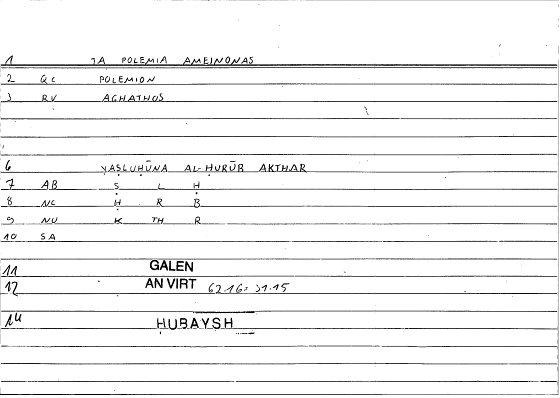 1 TA POLEMIA AMEINONAS
2 QC POLEMION
3 RV AGHATHOS
6 YAṢLUḤŪNA AL-ḤURŪB AKTHAR
7 AB Ṣ L Ḥ
8 NC Ḥ R B
9 NU K TH R
10 SA
11 GALEN
12 AN VIRT 62.16: 31.15
14 ḤUBAYSH